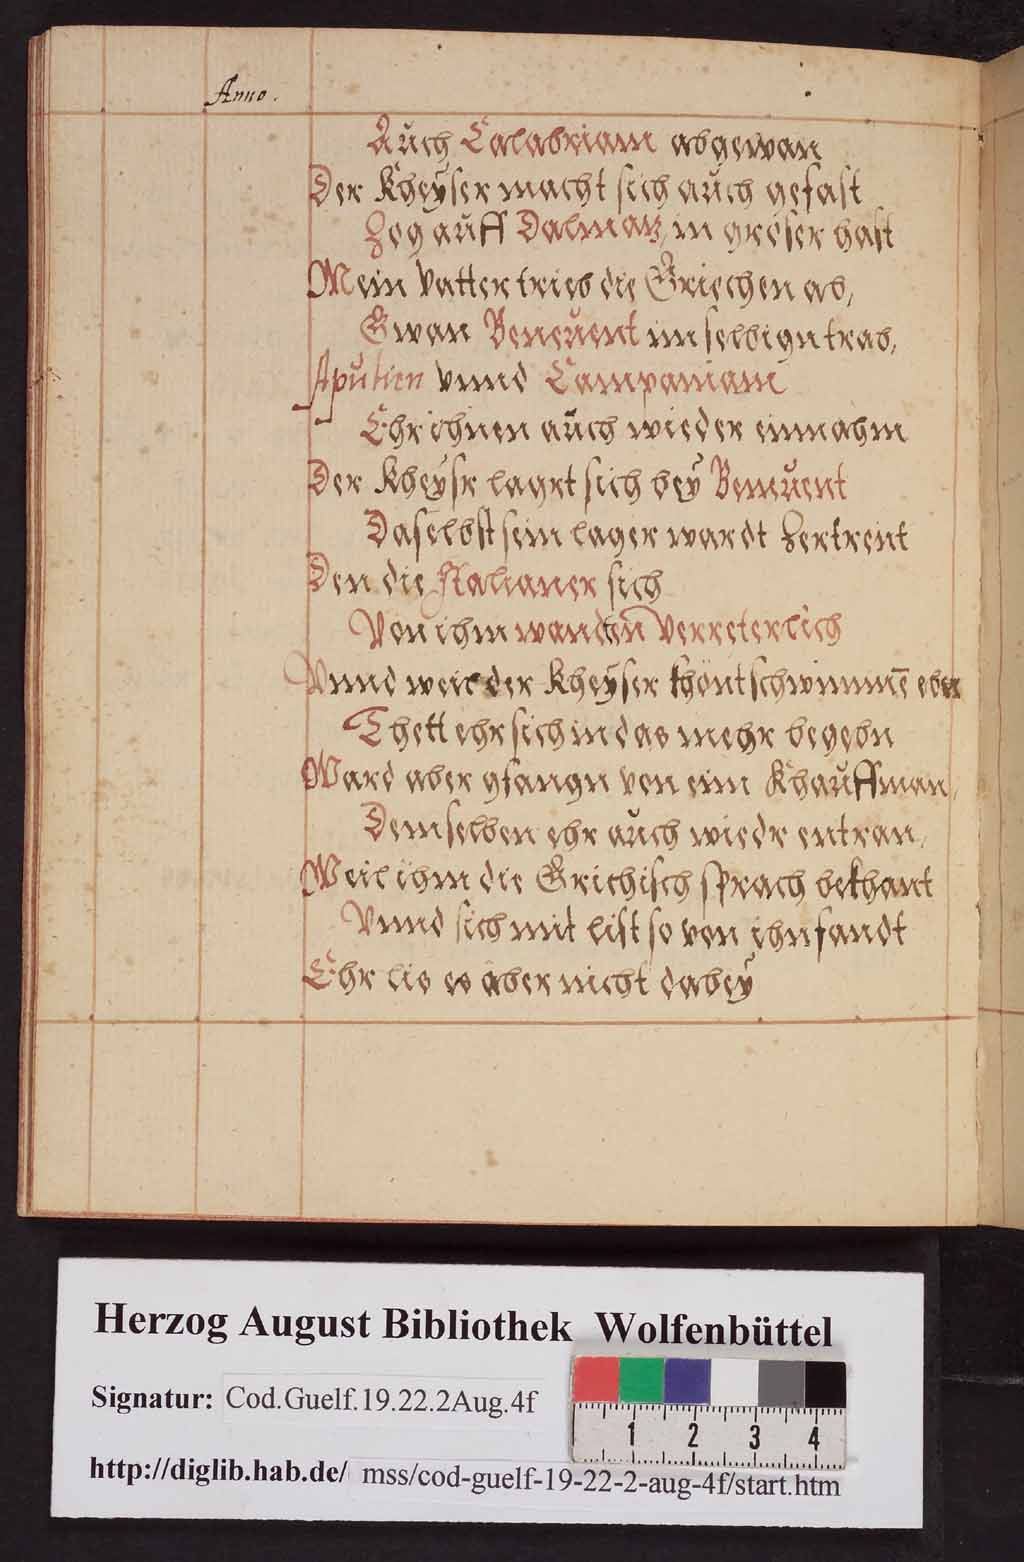 Anno.
Auch Calabriam abgewan
Der Kheÿser macht sich auch gefast
Zog auff Dalmatz, in groser hast
Mein Vatter trieb die Griechen ab,
Gwan Beneuent im selbign trab,
Apulien vnnd Campaniam
Ehr ihnen auch wieder einnahm
Der Kheÿsr lagrt sich beÿ Beneuent
Daselbst sein lager wardt Zertrent
Den die Italianer sich
Von ihm wanden Verreterlich
Vnnd weil der Kheÿser khönt schwimmē eber
Thett ehr sich in das mehr begebn
Ward aber gfangn von eim Khauffman,
Demselben ehr auch wiedr entran,
Weil ihm die Grichisch sprach bekhant
Vnnd sich mit list so von ihn fandt
Ehr lis es aber nicht dabeÿ
Herzog August Bibliothek Wolfenbüttel
Signatur: Cod.Guelf.19.22.2Aug.4f
1 2 3 4
http://diglib.hab.de/ mss/cod-guelf-19-22-2-aug-4f/start.htm